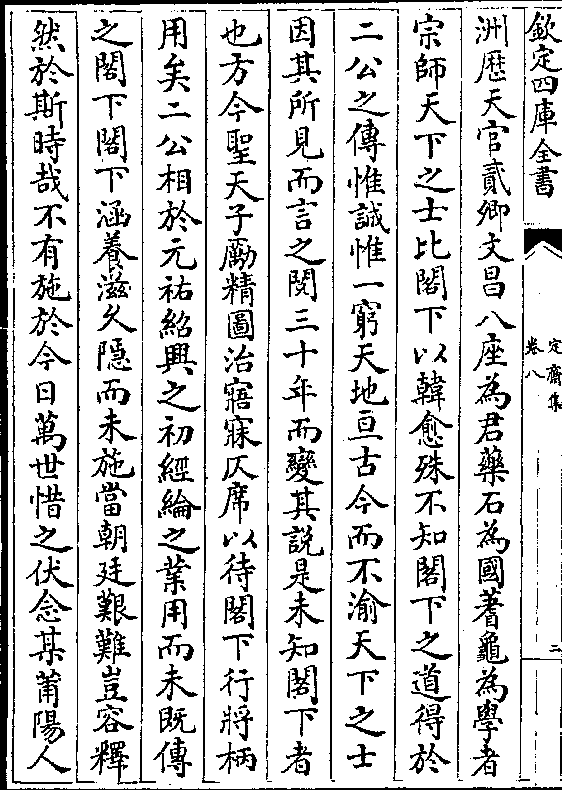 欽定四庫全書
定齋集
卷八
二
洲歴天官貳卿文昌八座為君藥石為國蓍龜為學者
宗師天下之士比閣下以韓愈殊不知閣下之道得於
二公之傳惟誠惟一窮天地亘古今而不渝天下之士
因其所見而言之閲三十年而變其説是未知閣下者
也方今聖天子勵精圖治寤寐仄席以待閣下行將柄
用矣二公相於元祐紹興之初經綸之業用而未既傳
之閣下閣下涵養滋久隱而未施當朝廷艱難豈容釋
然於斯時哉不有施於今日萬世惜之伏念某莆陽人